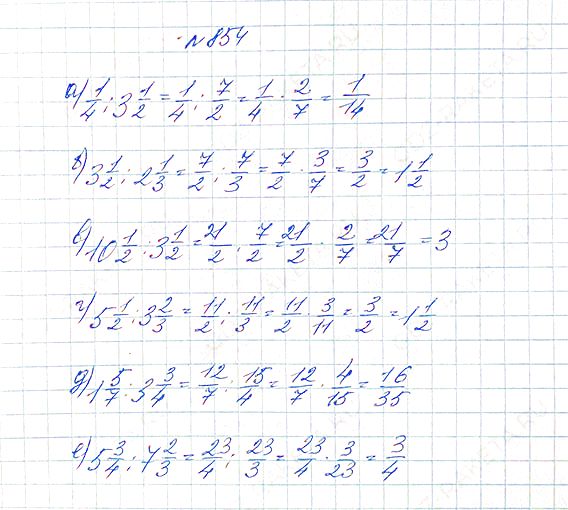 №854
а) 1/4 : 3 1/2 = 1/4 : 7/2 = 1/4 · 2/7 = 1/14
б) 3 1/2 : 2 1/3 = 7/2 : 7/3 = 7/2 · 3/7 = 3/2 = 1 1/2
в) 10 1/2 : 3 1/2 = 21/2 : 7/2 = 21/2 · 2/7 = 21/7 = 3
г) 5 1/2 : 3 2/3 = 11/2 : 11/3 = 11/2 · 3/11 = 3/2 = 1 1/2
д) 1 5/7 : 3 3/4 = 12/7 : 15/4 = 12/7 · 4/15 = 16/35
е) 5 3/4 : 7 2/3 = 23/4 : 23/3 = 23/4 · 3/23 = 3/4